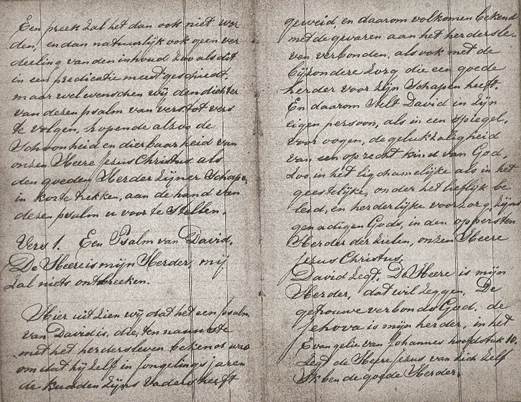 Een preek zal het dan ook niet wor
den, en dan natuurlijk ook geen ver
deeling van den inhoud zoo als dat
in een predicatie meest geschiedt.
maar wel wenschen wij den dichter
van deren psalm van vers tot vers
te volgen, hopende alsoo de
Schoonheid en dierbaarheid van
onzen Heere Jesus Christus als
den goeden Herder Zijner Schapen,
in korte trekken, aan de hand van
deren psalm u voor te stellen.
Vers 1. Een Psalm van David,
De Heere is mijn Herder, mij
zal niets ontbreken.
Hier uit zien wij dat het een psalm
van David is, die, ten nauwste
met het herdersleven bekend was
omdat hij zelf in jongelings jaren
de kudden zijns Vaders heeft
geweid en daarom volkomen bekend
met de gevaren aan het herdersle
ven verbonden, als ook met de
bijzondere zorg die een goede
herder voor zijn Schapen heeft.
En daarom stelt David in zijn
eigen persoon, als in een spiegel,
voor oogen, de gelukzaligheid
van een oprecht kind van God,
zoo, in het lighamelijke als in het
geestelijke, onder het lieflijk be
leid, en heerlijke voorzorg zijns
genadigen Gods, in den oppersten
Herder der zielen, onzen Heere
Jesus Christus,
David zegt: De Heere is mijn
Herder, dat wil zeggen, De
getrouwe verbonds God, de
Jehova is mijn herder, in het
Evangelie van Johannes hoofdstuk 10.
zegt de Heere Jesus van zich zelf
Ik ben de goede Herder.